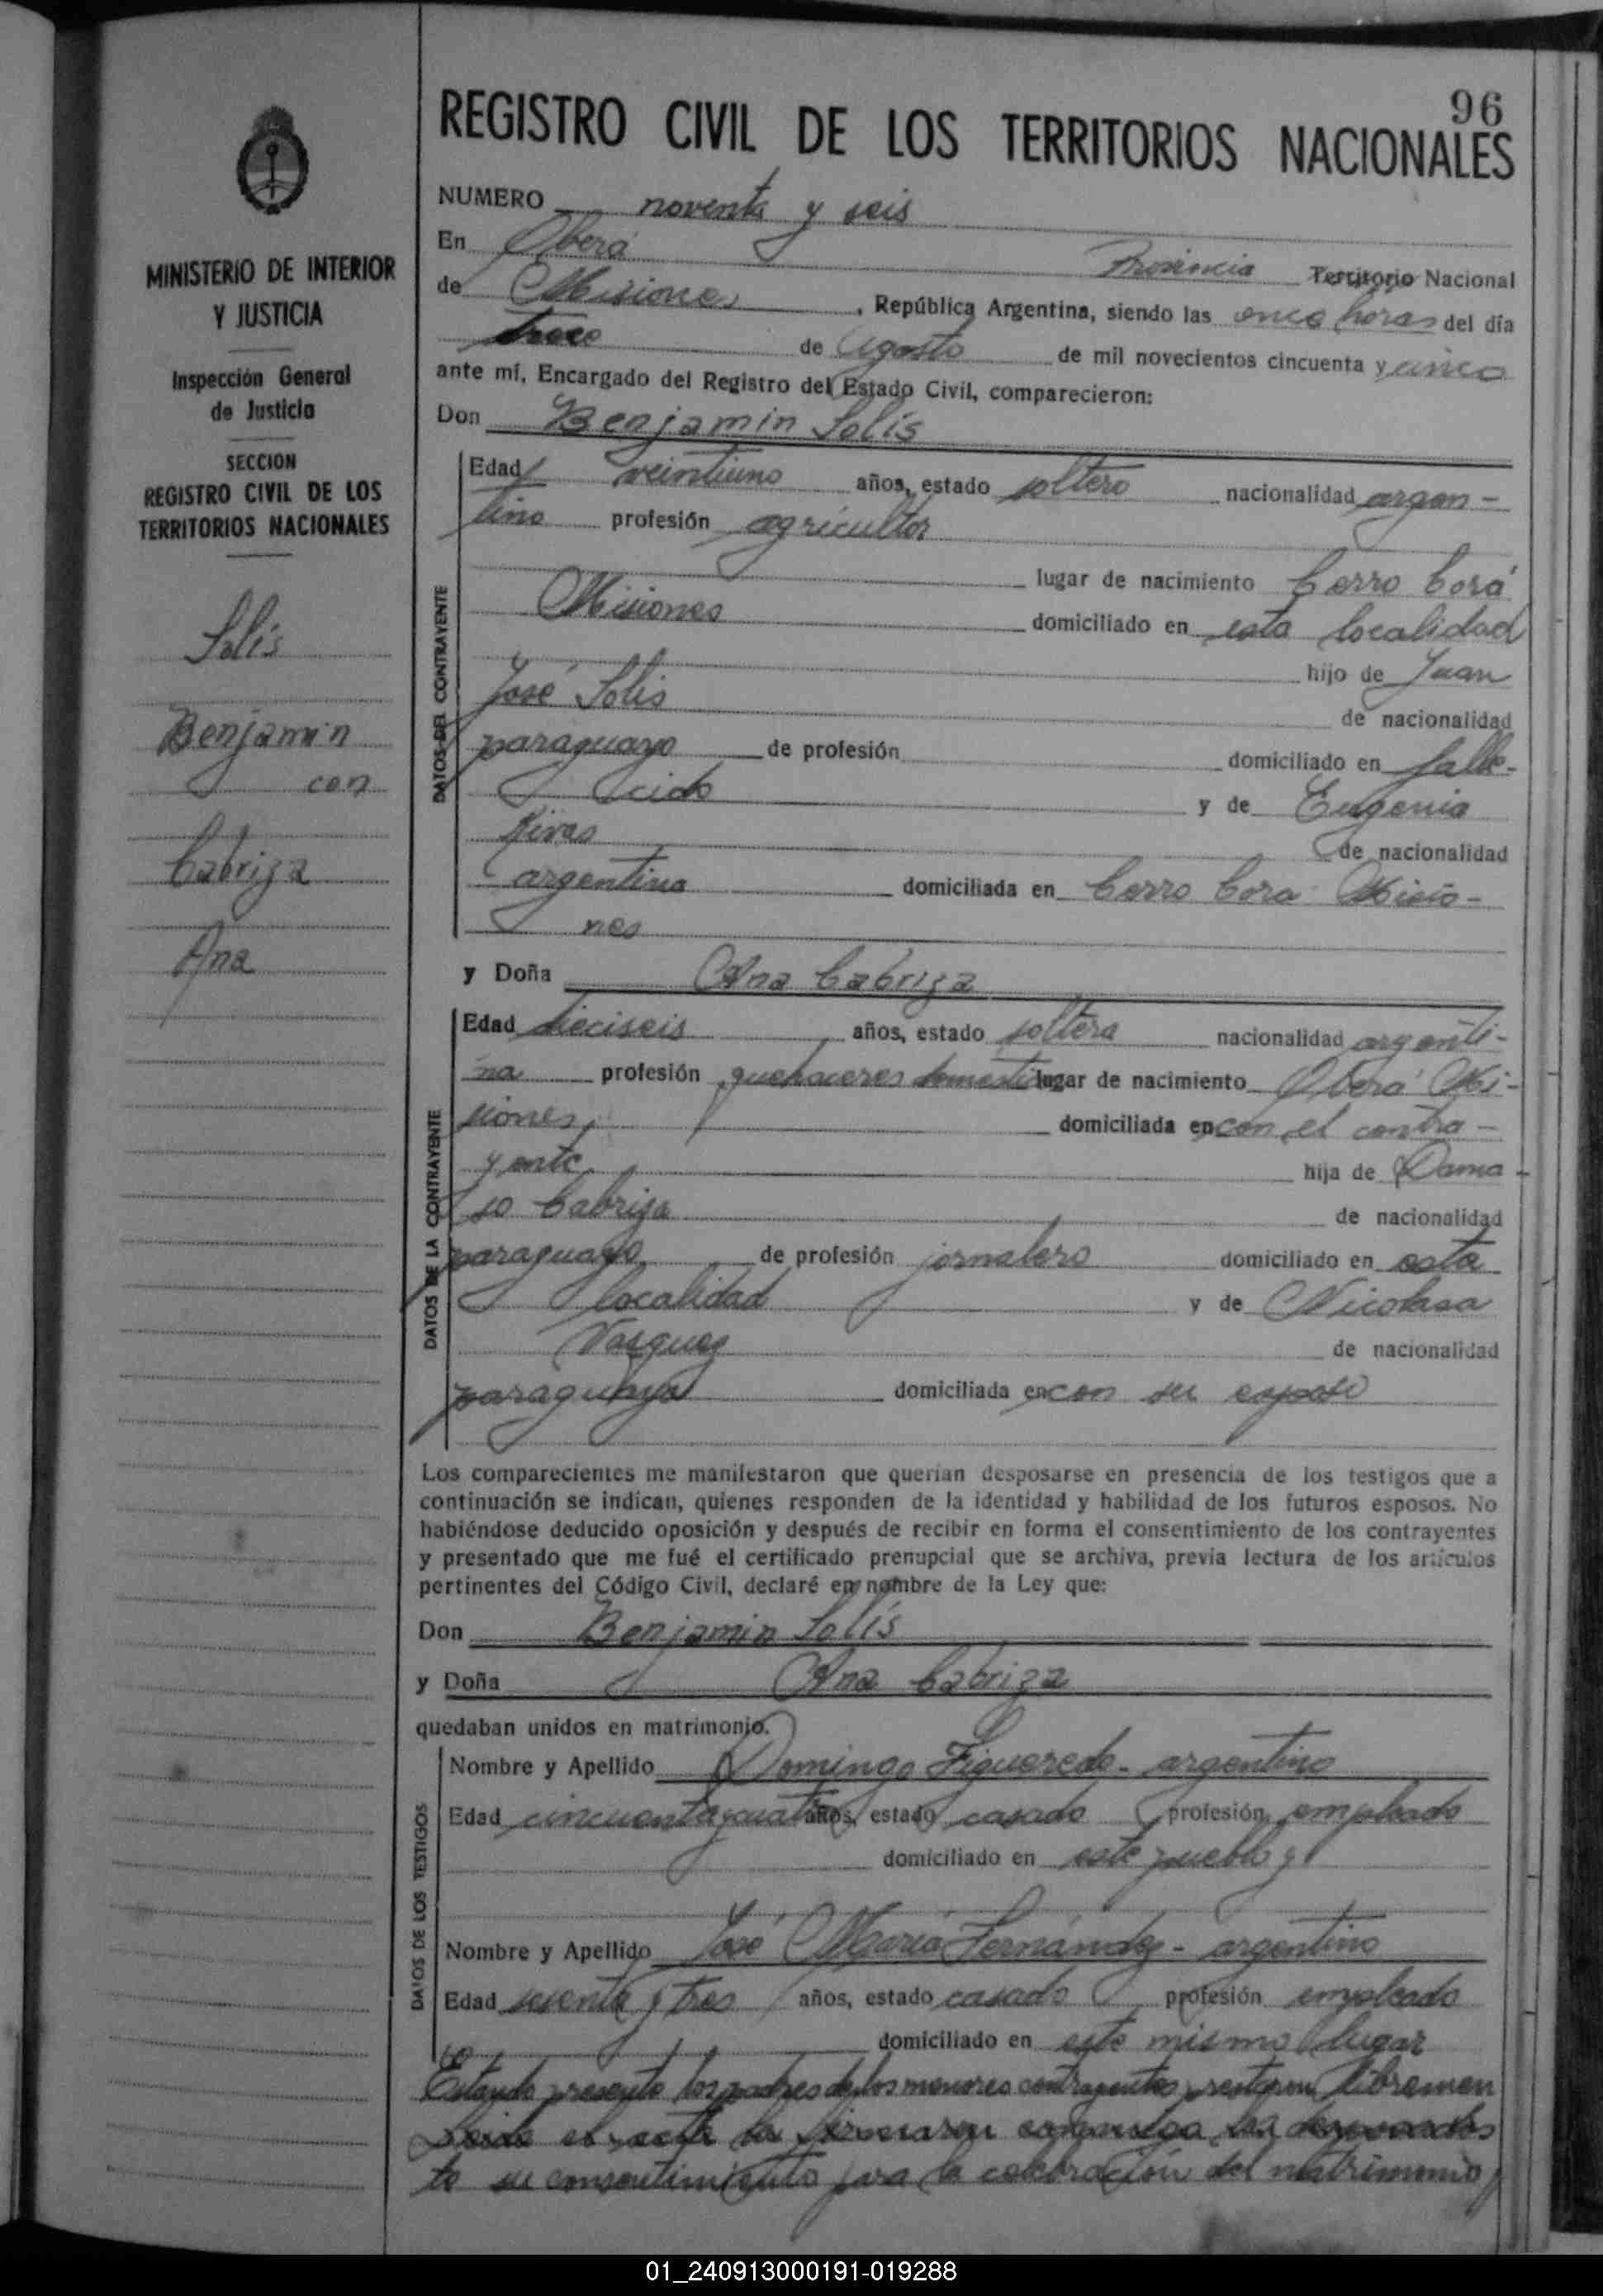 96
REGISTRO CIVIL DE LOS TERRITORIOS NACIONALES
MINISTERIO DE INTERIOR
Y JUSTICIA
Inspección General
de Justicia
SECCION
REGISTRO CIVIL DE LOS
TERRITORIOS NACIONALES
Solís
Benjamin
con
Cabriza
Ana
NUMERO noventa y seis
En Oberá Provincia Territorio Nacional
de Misiones, República Argentina, siendo las once horas del día
trece de agosto de mil novecientos cincuenta y cinco
ante mí, Encargado del Registro del Estado Civil, comparecieron:
Don Benjamin Solís
DATOS DEL CONTRAYENTE
Edad veintiuno años, estado soltero nacionalidad argen-
tino profesión agricultor
lugar de nacimiento Cerro Corá
Misiones domiciliado en esta localidad
hijo de Juan
José Solis de nacionalidad
paraguayo de profesión domiciliado en falle-
cido y de Eugenia
Rivas de nacionalidad
argentina domiciliada en Cerro Cora Misio-
nes
y Doña Ana Cabriza
DATOS DE LA CONTRAYENTE
Edad dieciseis años, estado soltera nacionalidad argenti-
na profesión quehaceres domesticos lugar de nacimiento Oberá Mi-
siones, domiciliada en con el contra-
yente, hija de Dama-
so Cabriza de nacionalidad
paraguayo, de profesión jornalero domiciliado en esta
localidad y de Nicolasa
Vasquez de nacionalidad
paraguaya domiciliada en con su esposo
Los comparecientes me manifestaron que querían desposarse en presencia de los testigos que a
continuación se indican, quienes responden de la identidad y habilidad de los futuros esposos. No
habiéndose deducido oposición y después de recibir en forma el consentimiento de los contrayentes
y presentado que me fué el certificado prenupcial que se archiva, previa lectura de los artículos
pertinentes del Código Civil, declaré en nombre de la Ley que:
Don Benjamin Solís
y Doña Ana Cabriza
quedaban unidos en matrimonio.
DATOS DE LOS TESTIGOS
Nombre y Apellido Domingo Figueredo - argentino
Edad cincuenta y cuatro años, estado casado profesión empleado
domiciliado en este pueblo y
Nombre y Apellido José María Fernández - argentino
Edad sesenta y tres años, estado casado profesión empleado
domiciliado en este mismo lugar
Estando presente los padres de los menores contrayentes prestaron libremen
Leida el acta la firmaron conmigo los
te su consentimiento para la celebración del matrimonio
01_240913000191-019288